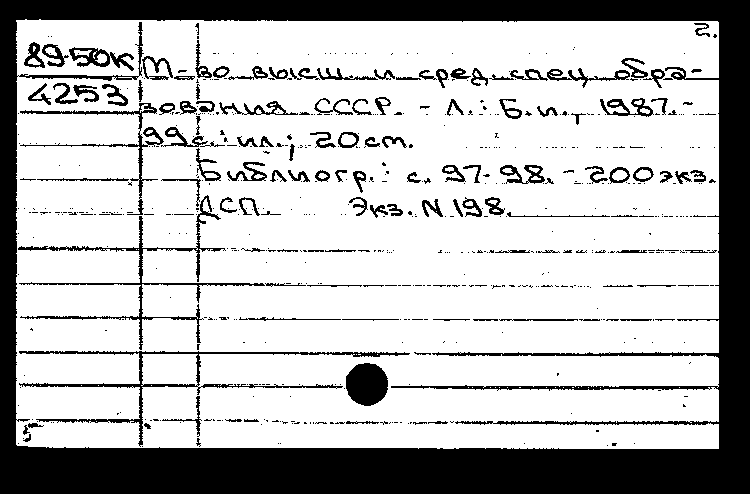 2.
89-50К М-во высш. и сред. спец. обра-
4253 зования СССР. - Л.: Б.и., 1987. -
99с.: ил.; 20см.
Библиогр.: с. 97-98. - 200экз.
ДСП. Экз. N 198.
5